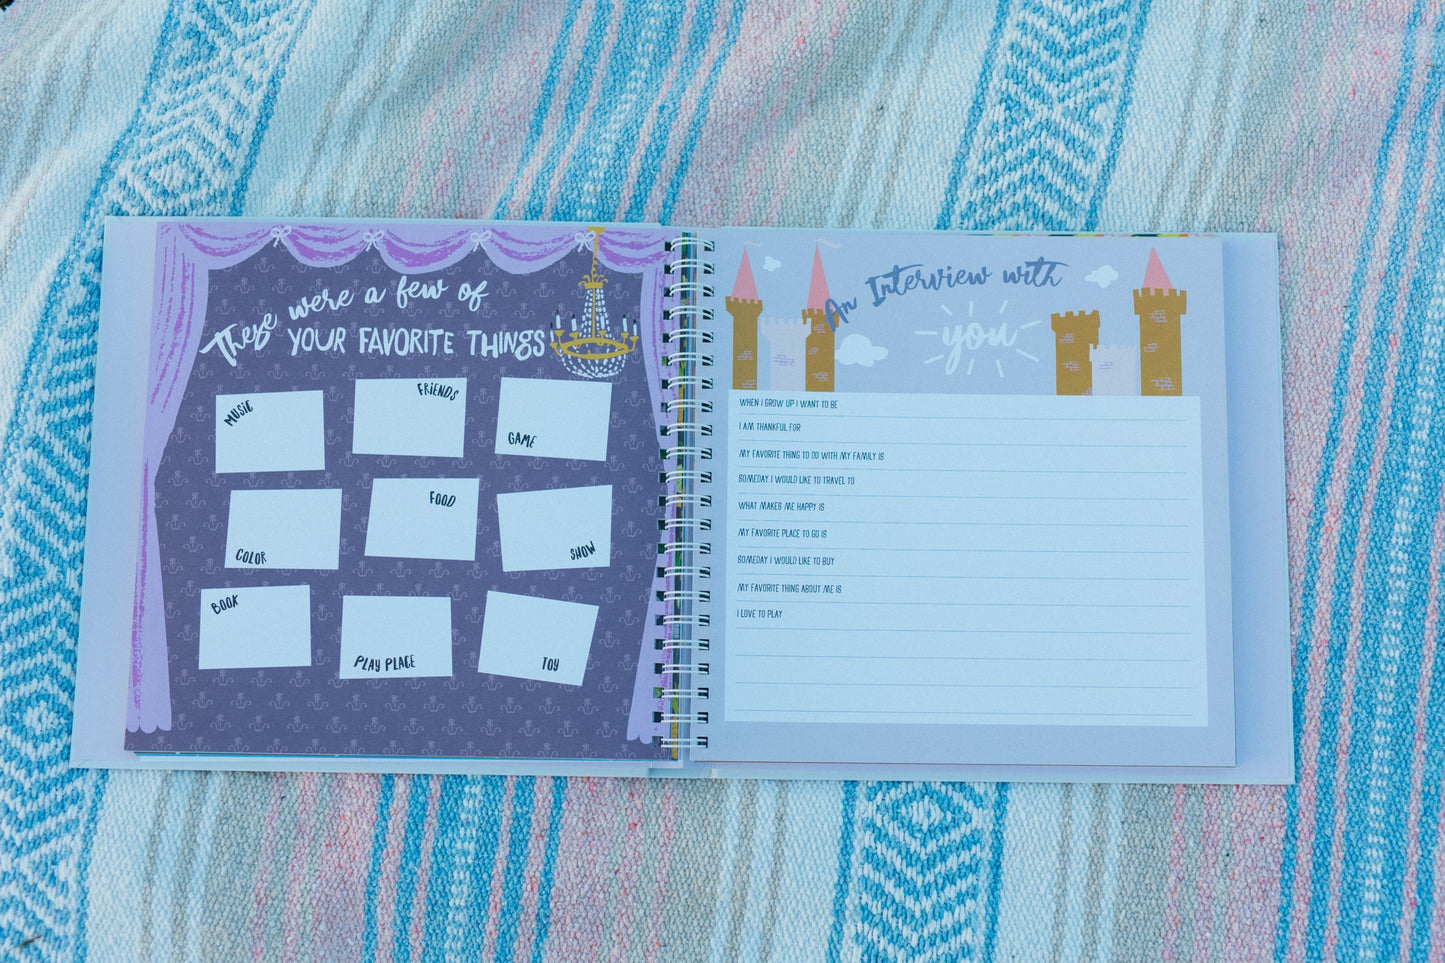 These were a few of
YOUR FAVORITE THINGS
MUSIC
FRIENDS
GAME
COLOR
FOOD
SHOW
BOOK
PLAY PLACE
TOY
An Interview with
you
WHEN I GROW UP I WANT TO BE
I AM THANKFUL FOR
MY FAVORITE THING TO DO WITH MY FAMILY IS
SOMEDAY I WOULD LIKE TO TRAVEL TO
WHAT MAKES ME HAPPY IS
MY FAVORITE PLACE TO GO IS
SOMEDAY I WOULD LIKE TO BUY
MY FAVORITE THING ABOUT ME IS
I LOVE TO PLAY